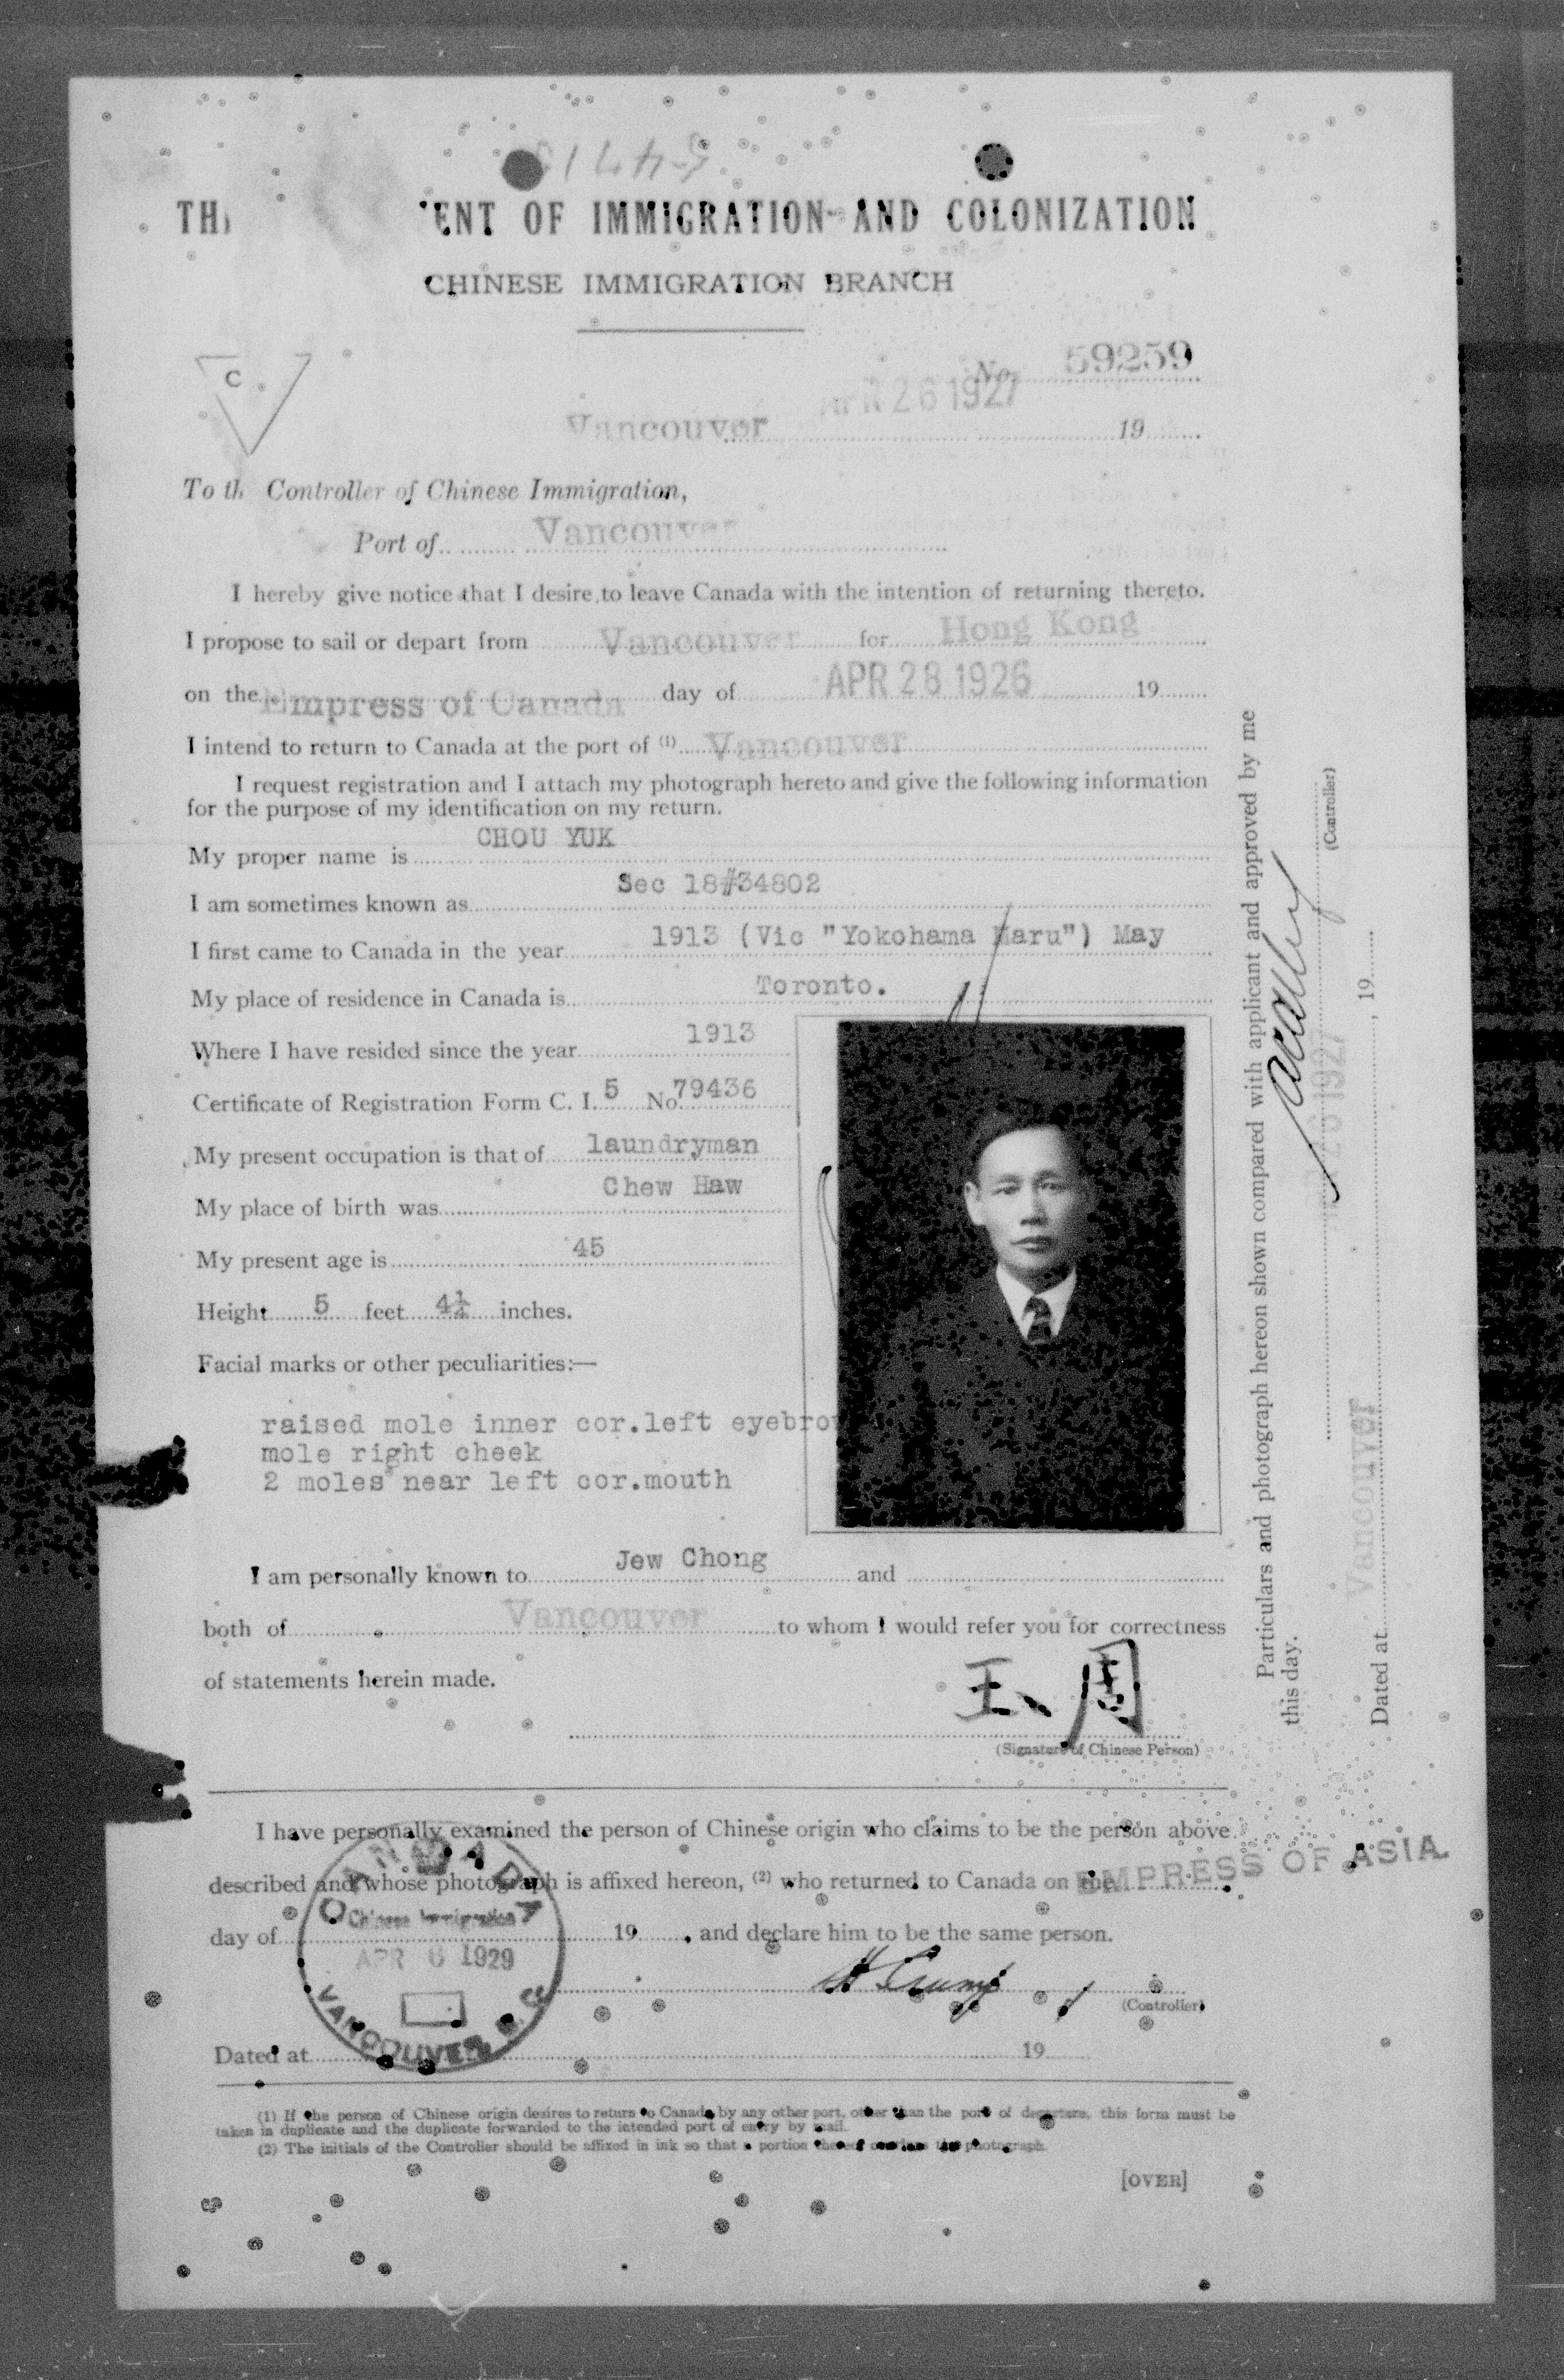 TH ENT OF IMMIGRATION AND COLONIZATION
CHINESE IMMIGRATION BRANCH
C
No. 59259
Vancouver APR 26 1927 19
To th Controller of Chinese Immigration,
Port of Vancouver
I hereby give notice that I desire to leave Canada with the intention of returning thereto.
I propose to sail or depart from Vancouver for Hong Kong
on the Empress of Canada day of APR 28 1926 19
I intend to return to Canada at the port of (1) Vancouver
I request registration and I attach my photograph hereto and give the following information
for the purpose of my identification on my return.
My proper name is CHOU YUK
I am sometimes known as Sec 18#34802
I first came to Canada in the year 1913 (Vic "Yokohama Maru") May
My place of residence in Canada is Toronto.
Where I have resided since the year 1913
Certificate of Registration Form C. I. 5 No. 79436
My present occupation is that of laundryman
My place of birth was Chew Haw
My present age is 45
Height 5 feet 4¼ inches.
Facial marks or other peculiarities:—
raised mole inner cor.left eyebrow
mole right cheek
2 moles near left cor.mouth
I am personally known to Jew Chong and
both of Vancouver to whom I would refer you for correctness
of statements herein made.
玉周
(Signature of Chinese Person)
I have personally examined the person of Chinese origin who claims to be the person above
described and whose photograph is affixed hereon, (2) who returned to Canada on the EMPRESS OF ASIA
day of 19 , and declare him to be the same person.
CANADA
Chinese Immigration
APR 6 1929
VANCOUVER B.C.
(Controller)
Dated at 19
(1) If the person of Chinese origin desires to return to Canada by any other port, other than the port of departure, this form must be
taken in duplicate and the duplicate forwarded to the intended port of entry by mail.
(2) The initials of the Controller should be affixed in ink so that a portion thereof overlaps the photograph.
[OVER]
Particulars and photograph hereon shown compared with applicant and approved by me
this day.
(Controller)
26 1927
Dated at Vancouver , 19